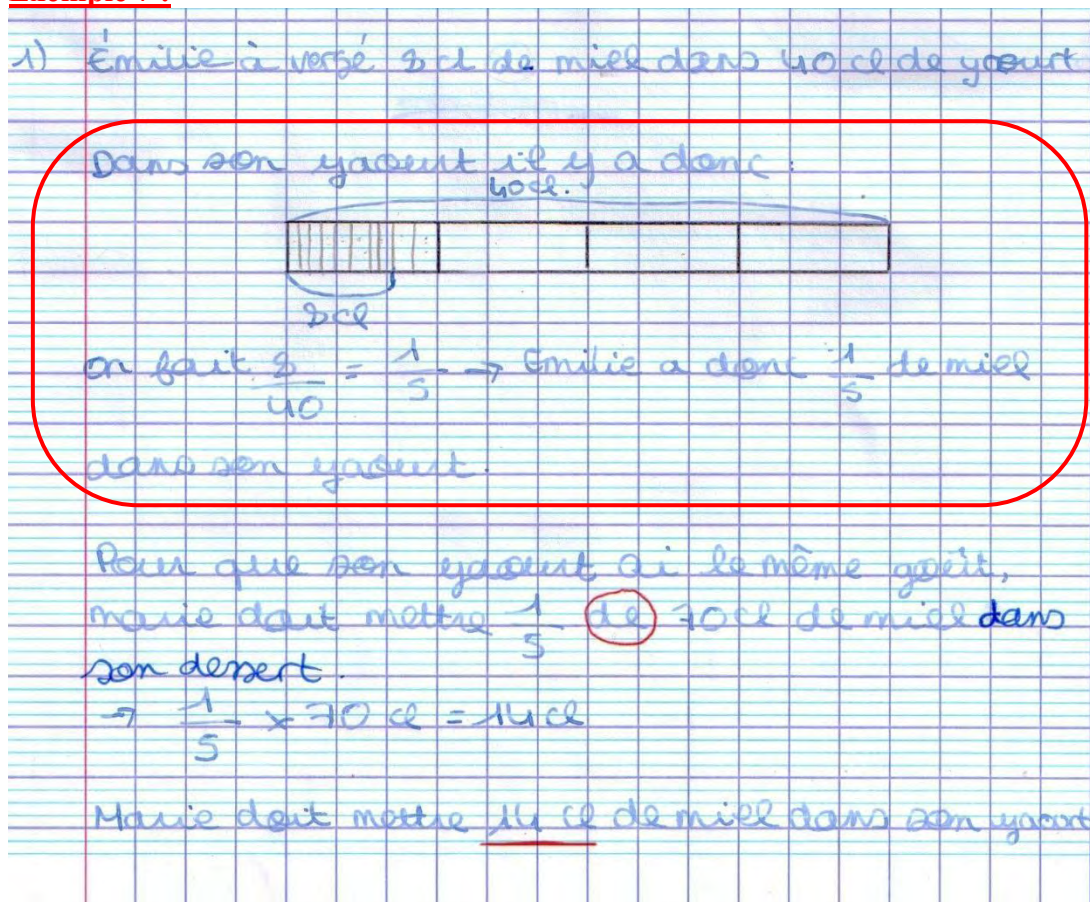 1) Émilie à versé 8 cl de miel dans 40 cl de yaourt
Dans son yaourt il y a donc :
40 cl.
8 cl
on fait 8/40 = 1/5 → Emilie a donc 1/5 de miel
dans son yaourt.
Pour que son yaourt ai le même goût,
marie doit mettre 1/5 de 70 cl de miel dans
son dessert.
→ 1/5 x 70 cl = 14 cl
Marie doit mettre 14 cl de miel dans son yaourt